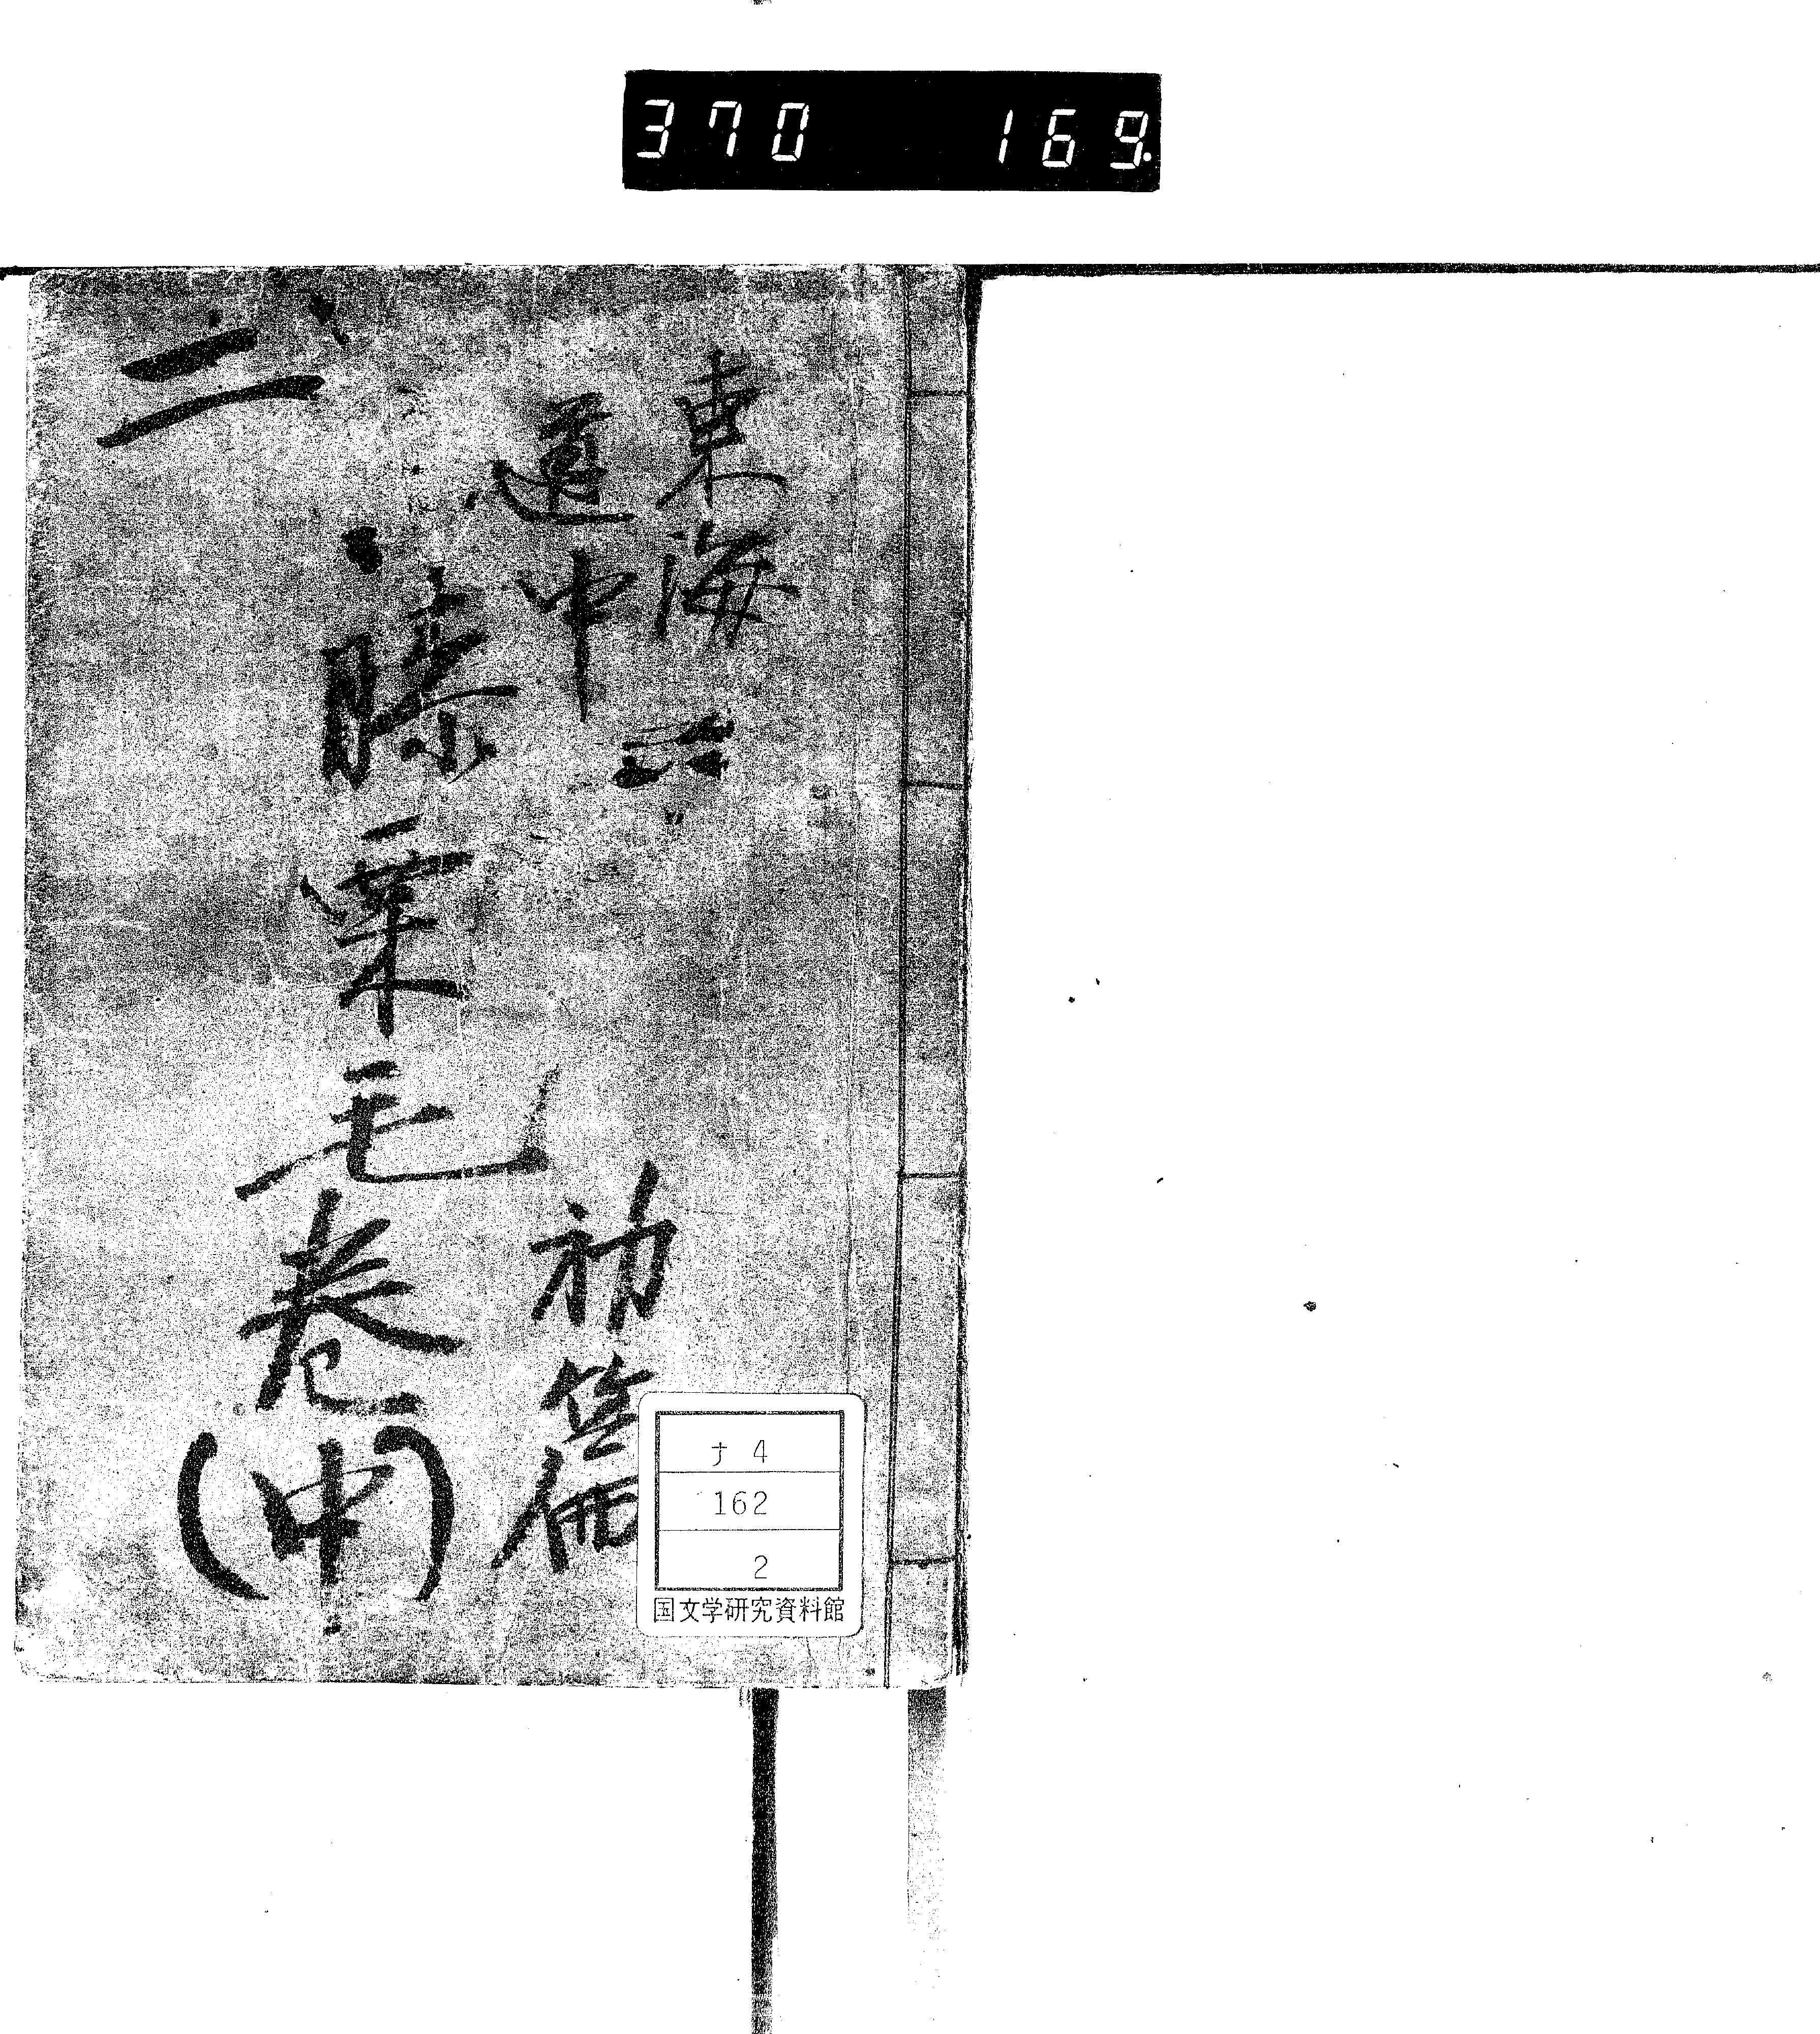 370 169.
東海
道中
膝栗毛巻(中)
初篇
二
ナ4
162
2
国文学研究資料館